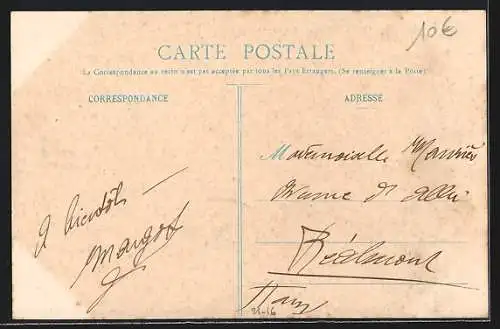 10€
CARTE POSTALE
La Correspondance au recto n'est pas acceptée par tous les Pays Etrangers. (Se renseigner à la Poste)
CORRESPONDANCE
ADRESSE
Mademoiselle
A bientôt
Margot
Réalmont
Tarn
21-16